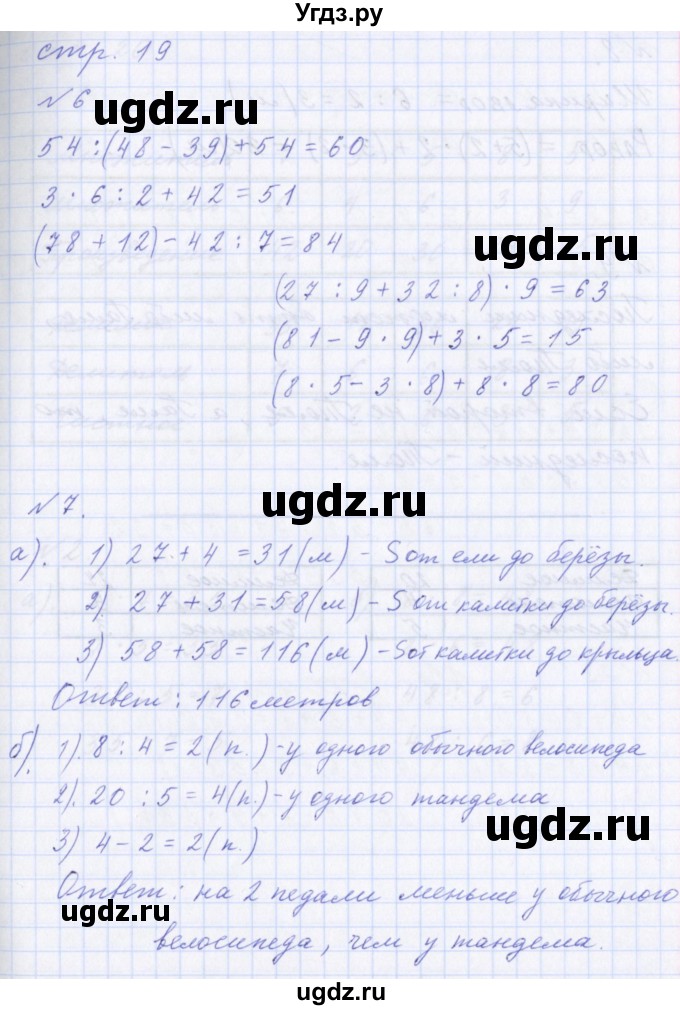 Угдз.ру
стр. 19
№6
54:(48-39)+54=60
3·6:2+42=51
(78+12)-42:7=84
ugdz.ru
(27:9+32:8)·9=63
(81-9·9)+3·5=15
(8·5-3·8)+8·8=80
ugdz.ru
№7.
а). 1) 27+4=31(м)-S от ели до берёзы.
2) 27+31=58(м)-S от калитки до берёзы.
3) 58+58=116(м)-S от калитки до крыльца.
Ответ: 116 метров
б). 1). 8:4=2(п.)-у одного обычного велосипеда
2). 20:5=4(п.)-у одного тандема
3) 4-2=2(п.)
ugdz.ru
Ответ: на 2 педали меньше у обычного
ugdz.ru
велосипеда, чем у тандема.
ugdz.ru